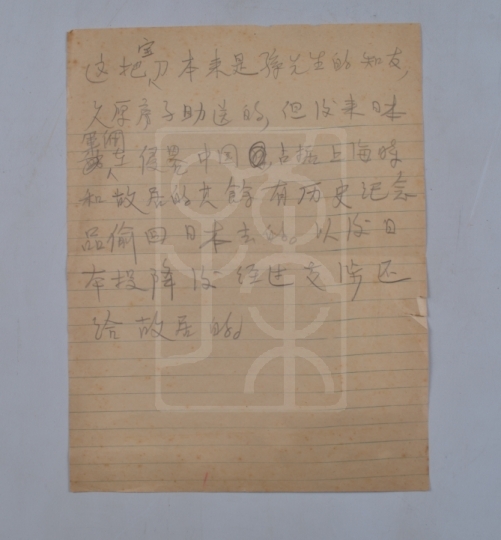 这把宝刀本来是孙先生的知友,
久原房子助送的,但后来日本
军阀在侵略中国,占据上海时
和故居的其余有历史纪念
品偷回日本去的。以后日
本投降后经过交涉还
给故居的。